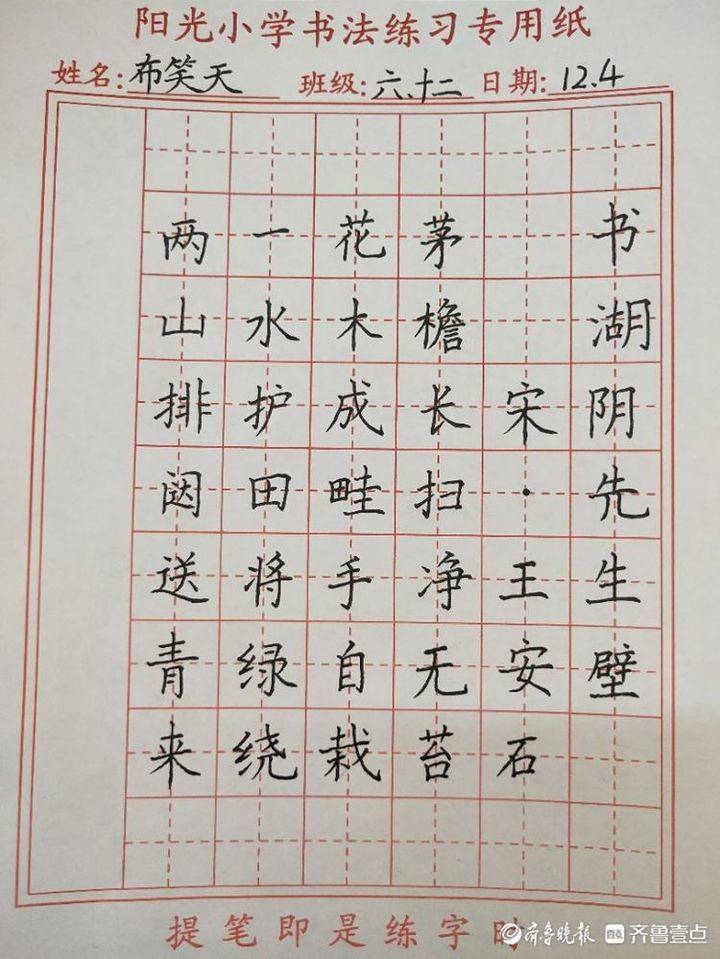 阳光小学书法练习专用纸
姓名:布笑天 班级:六.十二 日期:12.4
书湖阴先生壁
宋·王安石
茅檐长扫净无苔
花木成畦手自栽
一水护田将绿绕
两山排闼送青来
提笔即是练字时
齐鲁晚报 壹点 齐鲁壹点